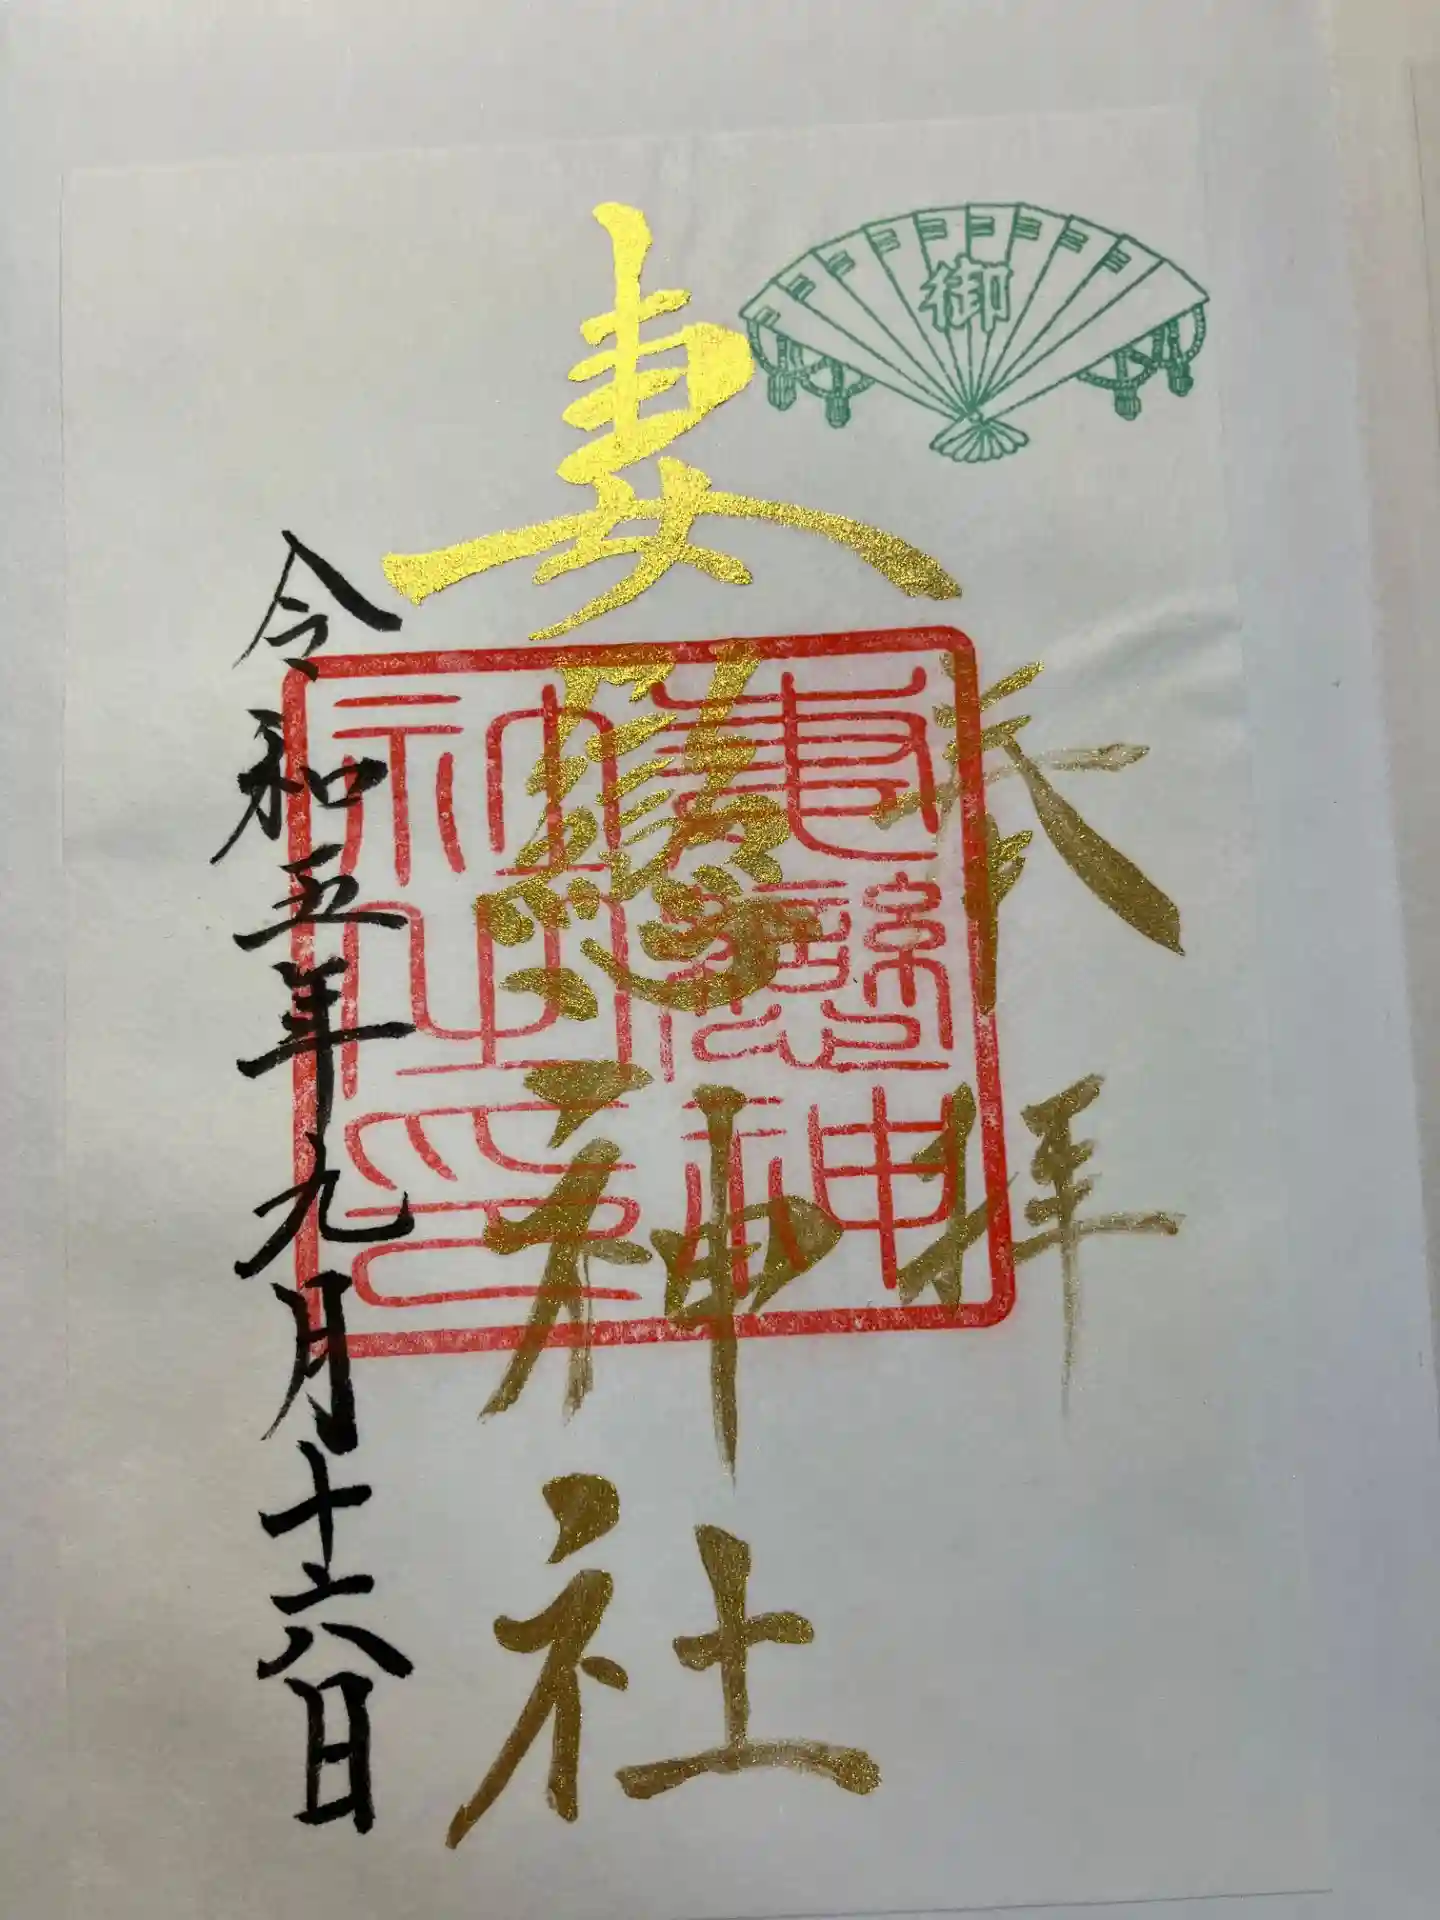 御
奉拝
妻戀神社
妻戀神社之印
令和五年九月十六日